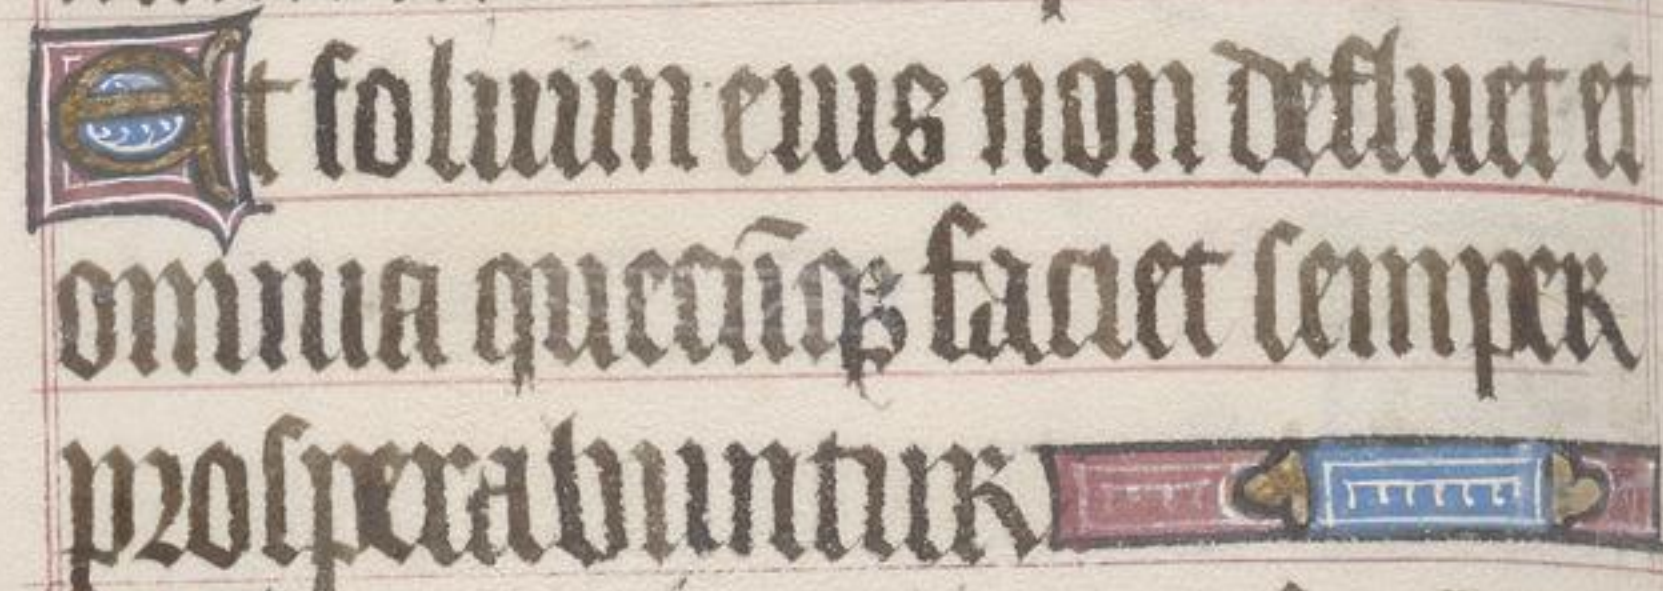 Et folium eius non defluet et
omnia quecūqꝫ faciet semper
prosperabuntur